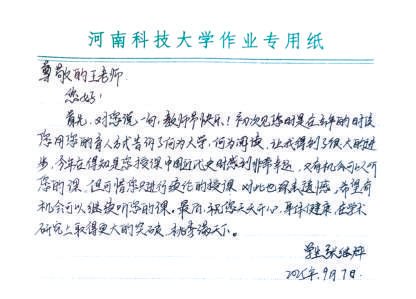 河南科技大学作业专用纸
尊敬的王老师
您好!
首先,对您说一句,教师节快乐!初次见您时是在去年的时候
您用您的育人方式告诉了何为大学,何为阅读,让我得到了很大的进
步,今年在得知是您授课中国近代史时感到非常幸运,又有机会可以听
您的课,但可惜您只进行的授课,对此也深表遗憾,希望有
机会可以继续听您的课。最后,祝您天天开心,身体健康,在学术
研究上取得更大的突破,桃李满天下。
学生张
2025年9月7日